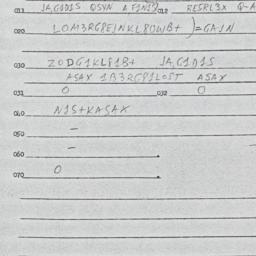 011 JA,G1D1S QSYN AF1N1? 012 RESRL3X Q-A
020 LOM3RGPEJNKLPOWB+ )=GAJN
030 ZODG1KLP1B+ JA,G1D1S
ASAX 1B3RGP1LOST ASAX
031 0 032 0
040 N1S+KASAX
050 –
060 –
070 0